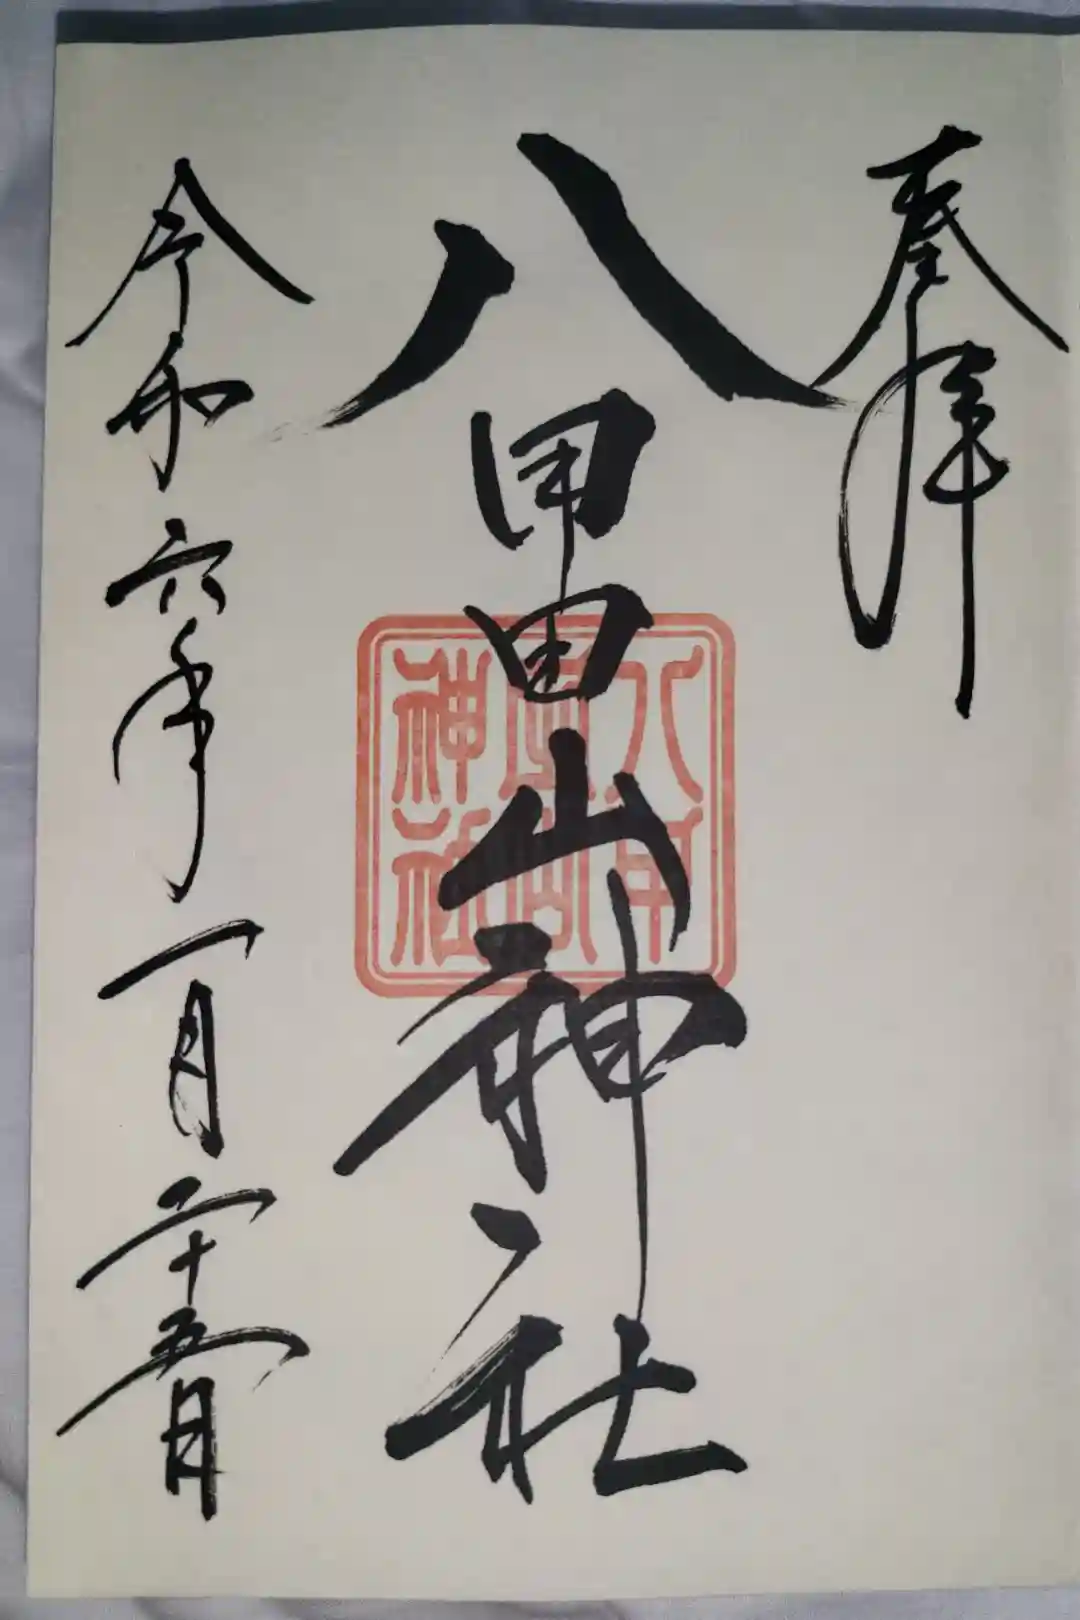 奉拝
八甲田山神社
令和六年一月二十五日
八甲
神社